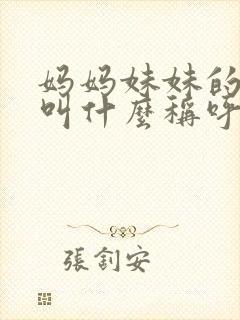 妈妈妹妹的
叫什麼稱呼
張釗安